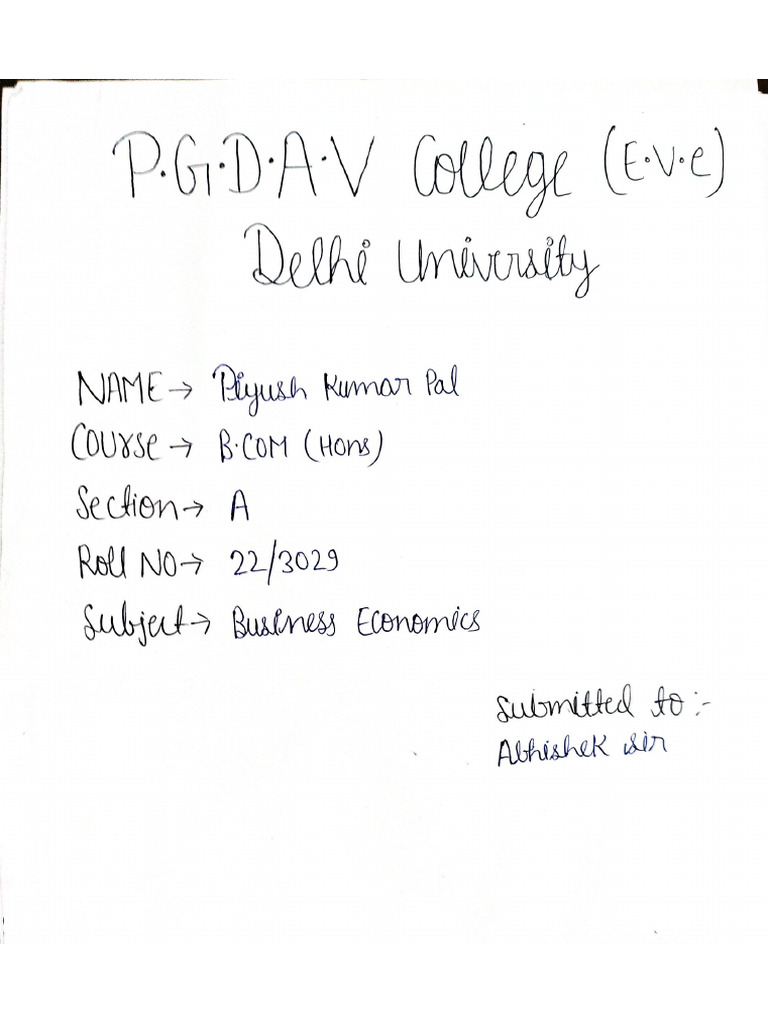 P.G.D.A.V College (E.v.e)
Delhi University
NAME → Piyush Kumar Pal
Course → B.COM (Hons)
Section → A
Roll NO → 22/3029
Subject → Business Economics
Submitted to :-
Abhishek sir